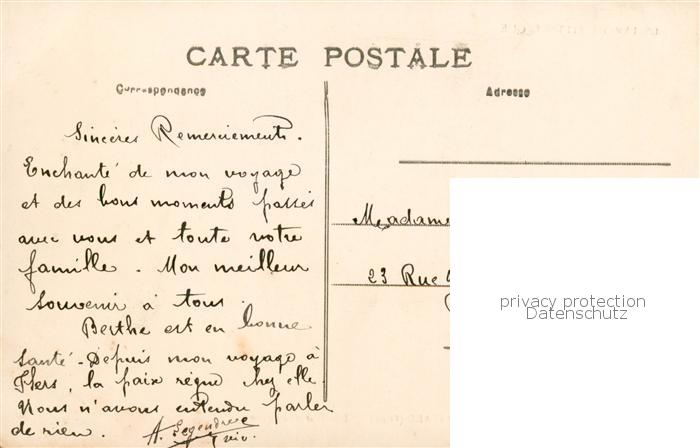 CARTE POSTALE
Correspondance
Adresse
Sincères Remerciements.
Enchanté de mon voyage
et des bons moments passés
avec vous et toute votre
famille. Mon meilleur
souvenir à tous.
Berthe est en bonne
santé - Depuis mon voyage à
Flers, la paix règne chez elle.
Nous n'avons entendu parler
de rien.
A. Legendre
Madame
23 Rue
privacy protection
Datenschutz